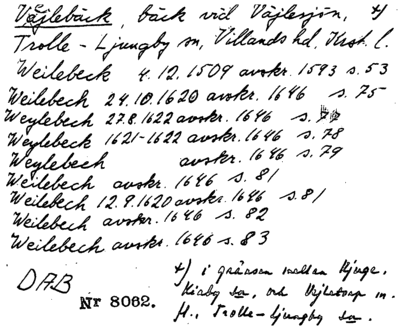 Väjlebäck, bäck vid Väjlesjön, *)
Trolle-Ljungby sn, Villands hd, Krst. l.
Weilebeck 4.12.1509 avskr. 1593 s. 53
Weilebeck 24.10.1620 avskr. 1646 s. 75
Weylebeck 27.8.1622 avskr. 1646 s.
Weylebeck 1621-1622 avskr. 1646 s. 78
Weylbech avskr. 1646 s. 79
Weilebech avskr. 1646 s. 81
Weilebech 12.9.1620 avskr. 1646 s. 81
Weilebech avskr. 1646 s. 82
Weilebech avskr. 1646 s. 83
*) i gränsen mellan
Kiaby sn, och
Trolle-Ljungby sn.
DAB
Nr 8062.